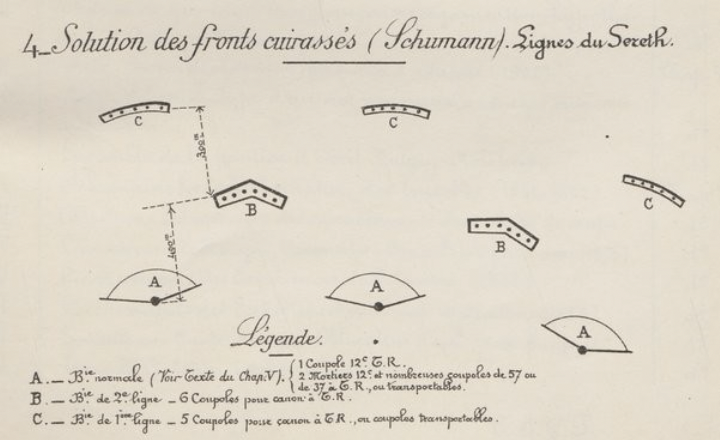 4_Solution des fronts cuirassés (Schumann). Lignes du Sereth.
C
C
300m
C
B
B
400m
A
A
A
Légende.
A._ Bie normale (Voir Texte du Chap. V). { 1 Coupole 12c T.R.
2 Mortiers 12c et nombreuses coupoles de 57 ou
de 37 à T.R., ou transportables.
B._ Bie de 2e ligne _ 6 Coupoles pour canon à T.R.
C._ Bie de 1ère ligne _ 5 Coupoles pour canon à T.R., ou coupoles transportables.